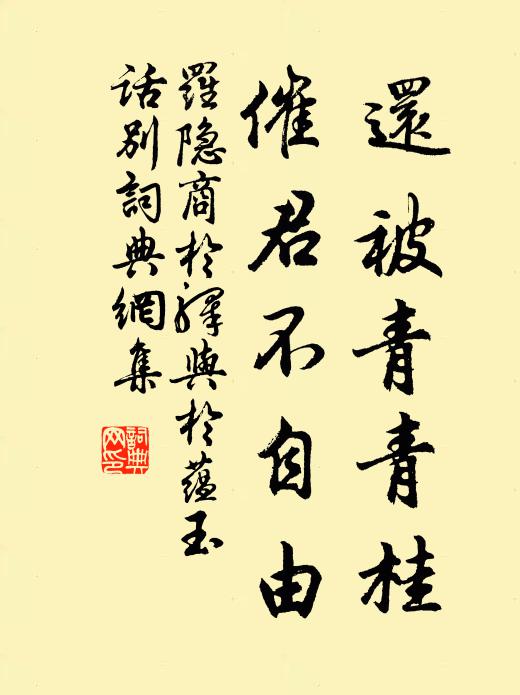 還被青青桂
催君不自由
羅隐商於驛與於蘊玉
话别詞典網集
詞典
网印